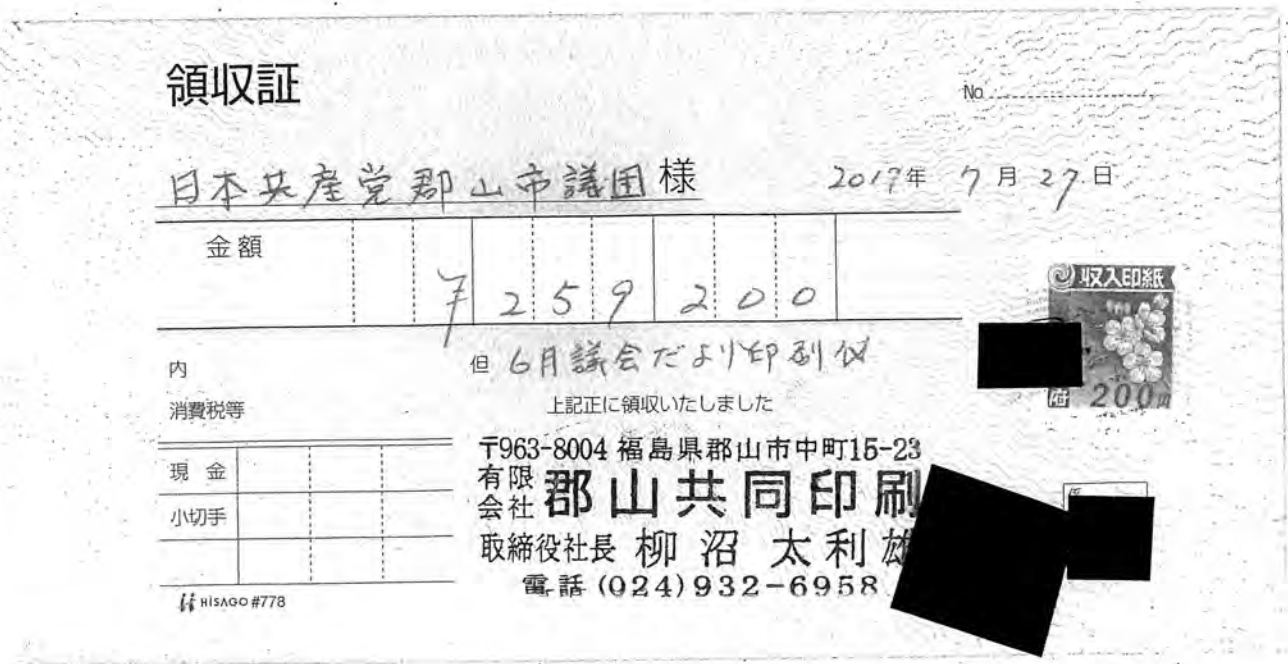 領収証
No.
日本共産党郡山市議団様
2017年 7月 27日
金額
¥259200
収入印紙
200円
内
但 6月議会だより印刷代
消費税等
上記正に領収いたしました
現金
小切手
〒963-8004 福島県郡山市中町15-23
有限会社 郡山共同印刷
取締役社長 柳沼太利雄
電話 (024)932-6958
HISAGO #778